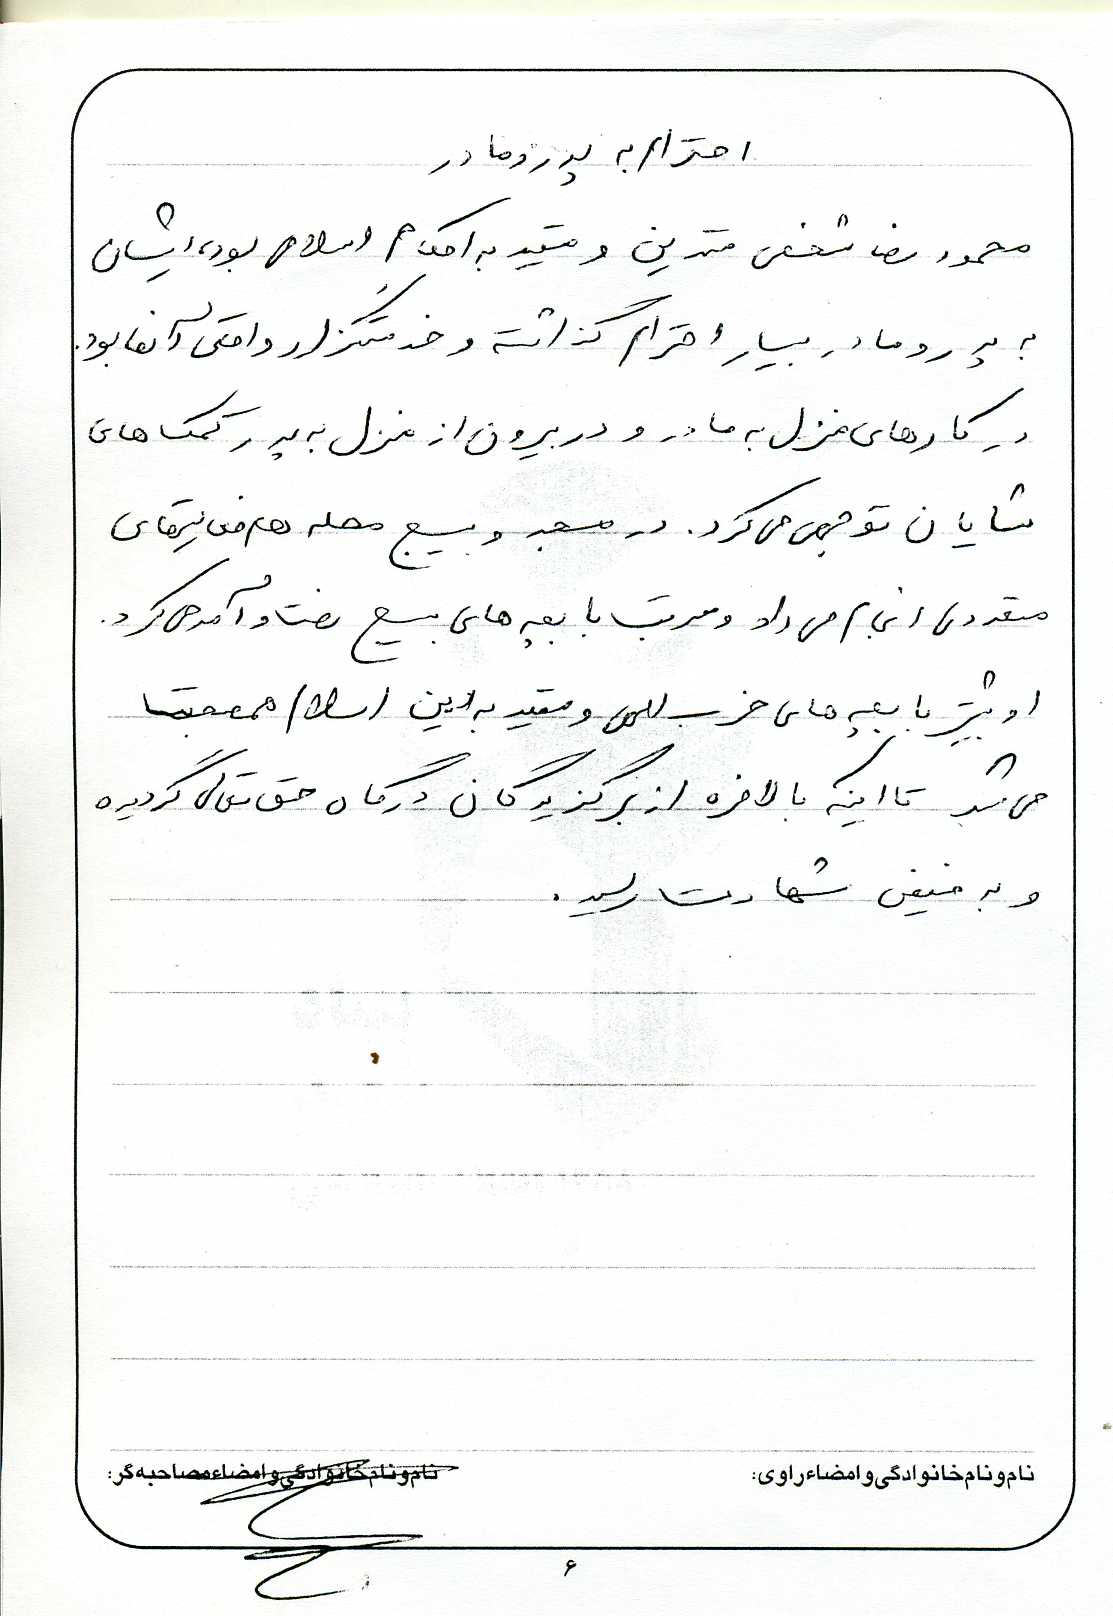 احترام به پدر و مادر
محمود رضا شخصی متدین و مقید به احکام اسلام بود، ایشان
به پدر و مادر بسیار احترام گذاشته و خدمتگزار واقعی آنها بود.
در کارهای منزل به مادر و در بیرون از منزل به پدر کمک های
شایان توجهی می کرد. در مسجد و بسیج محله هم فعالیتهای
متعددی انجام می داد و مرتب با بچه های بسیج رفت و آمد می کرد.
او بیشتر با بچه های حزب اللهی و مقید به دین اسلام هم صحبت
می شد تا اینکه بالاخره از برگزیدگان درگاه حق تعالی گردیده
و به فیض شهادت رسید.
نام و نام خانوادگی و امضاء راوی:
نام و نام خانوادگی و امضاء مصاحبه گر:
۶